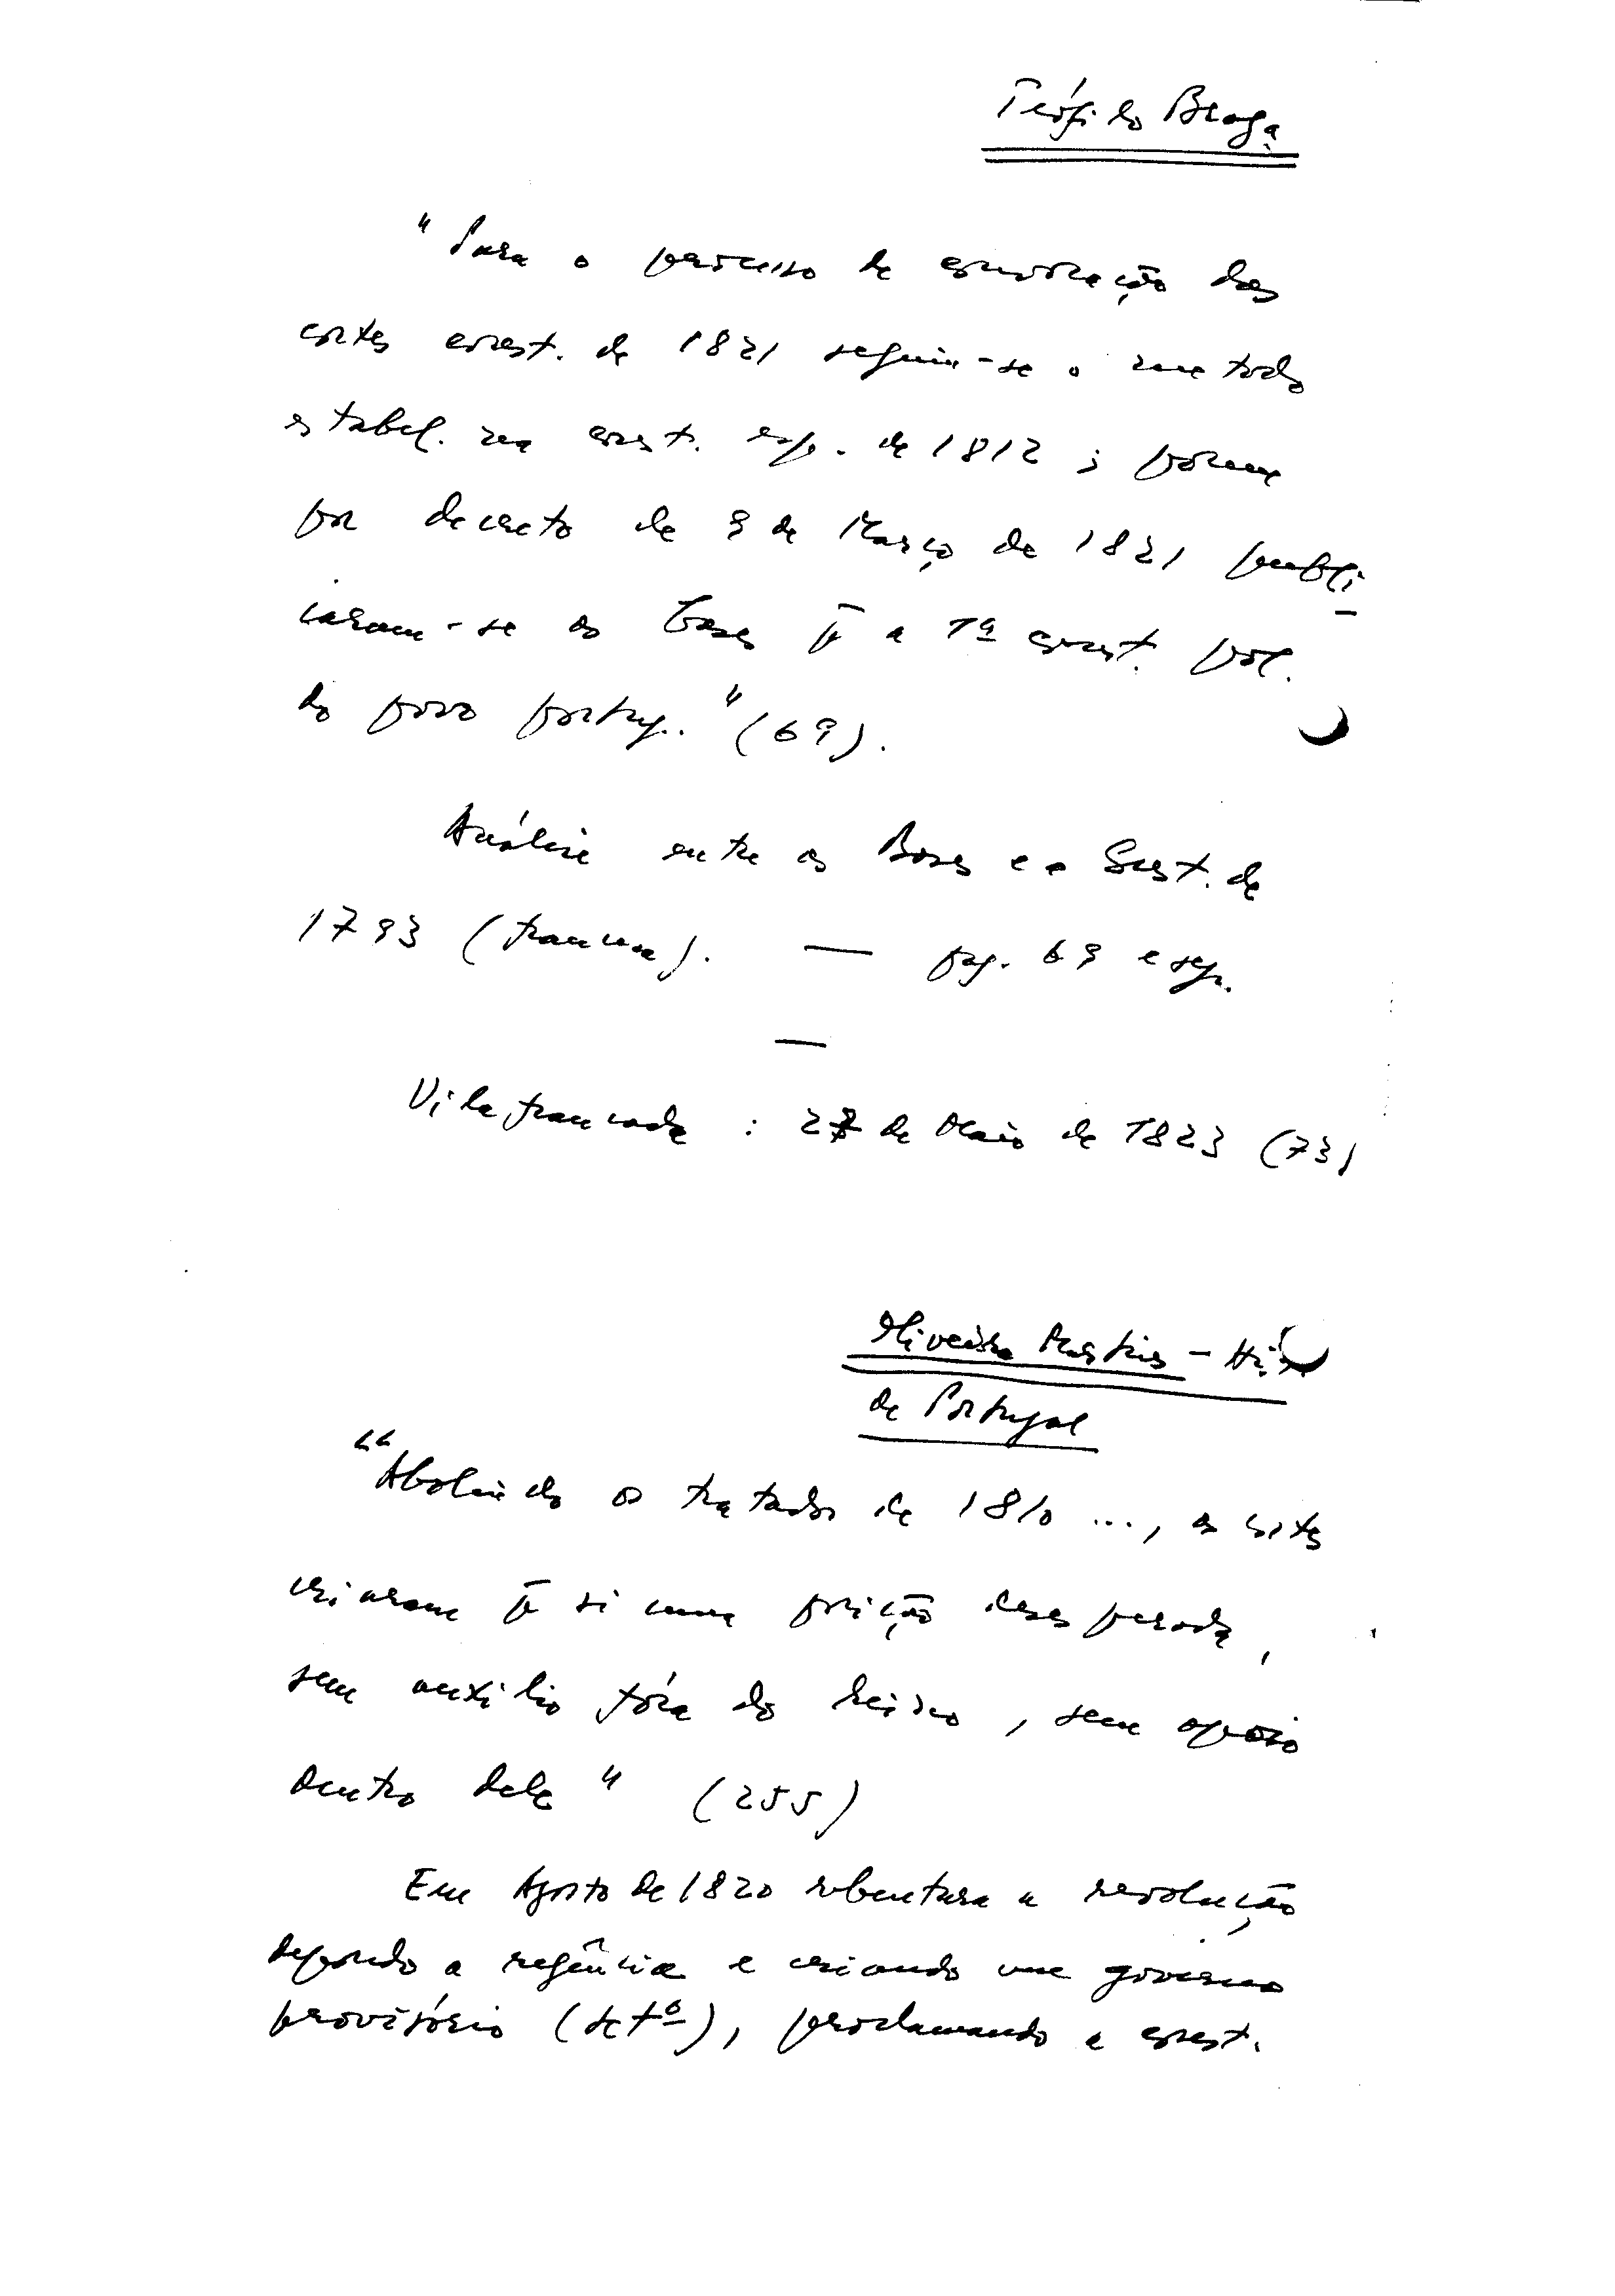 Teófilo Braga
"Para o processo de convocação das
cortes const. de 1821 seguiu-se o metodo
estabel. na const. esp. de 1812; porem
por decreto de 9 de Março de 1821 publi-
caram-se as Bases p̄ a 1ª const. pol.
do povo portug." (69).
Análise entre as Bases e a Const. de
1793 (francesa). — pag. 69 e seg.
—
Vilafrancada : 27 de Maio de 1823 (73)
Oliveira Martins - Hist.
de Portugal
"Abolindo os tratados de 1810 ..., as cortes
criaram p̄ si uma posição desesperada,
sem auxilio fóra do reino, sem apoio
dentro dele" (255)
Em Agosto de 1820 rebentara a revolução
depondo a regência e criando um govêrno
provisório (setº), proclamando a const.